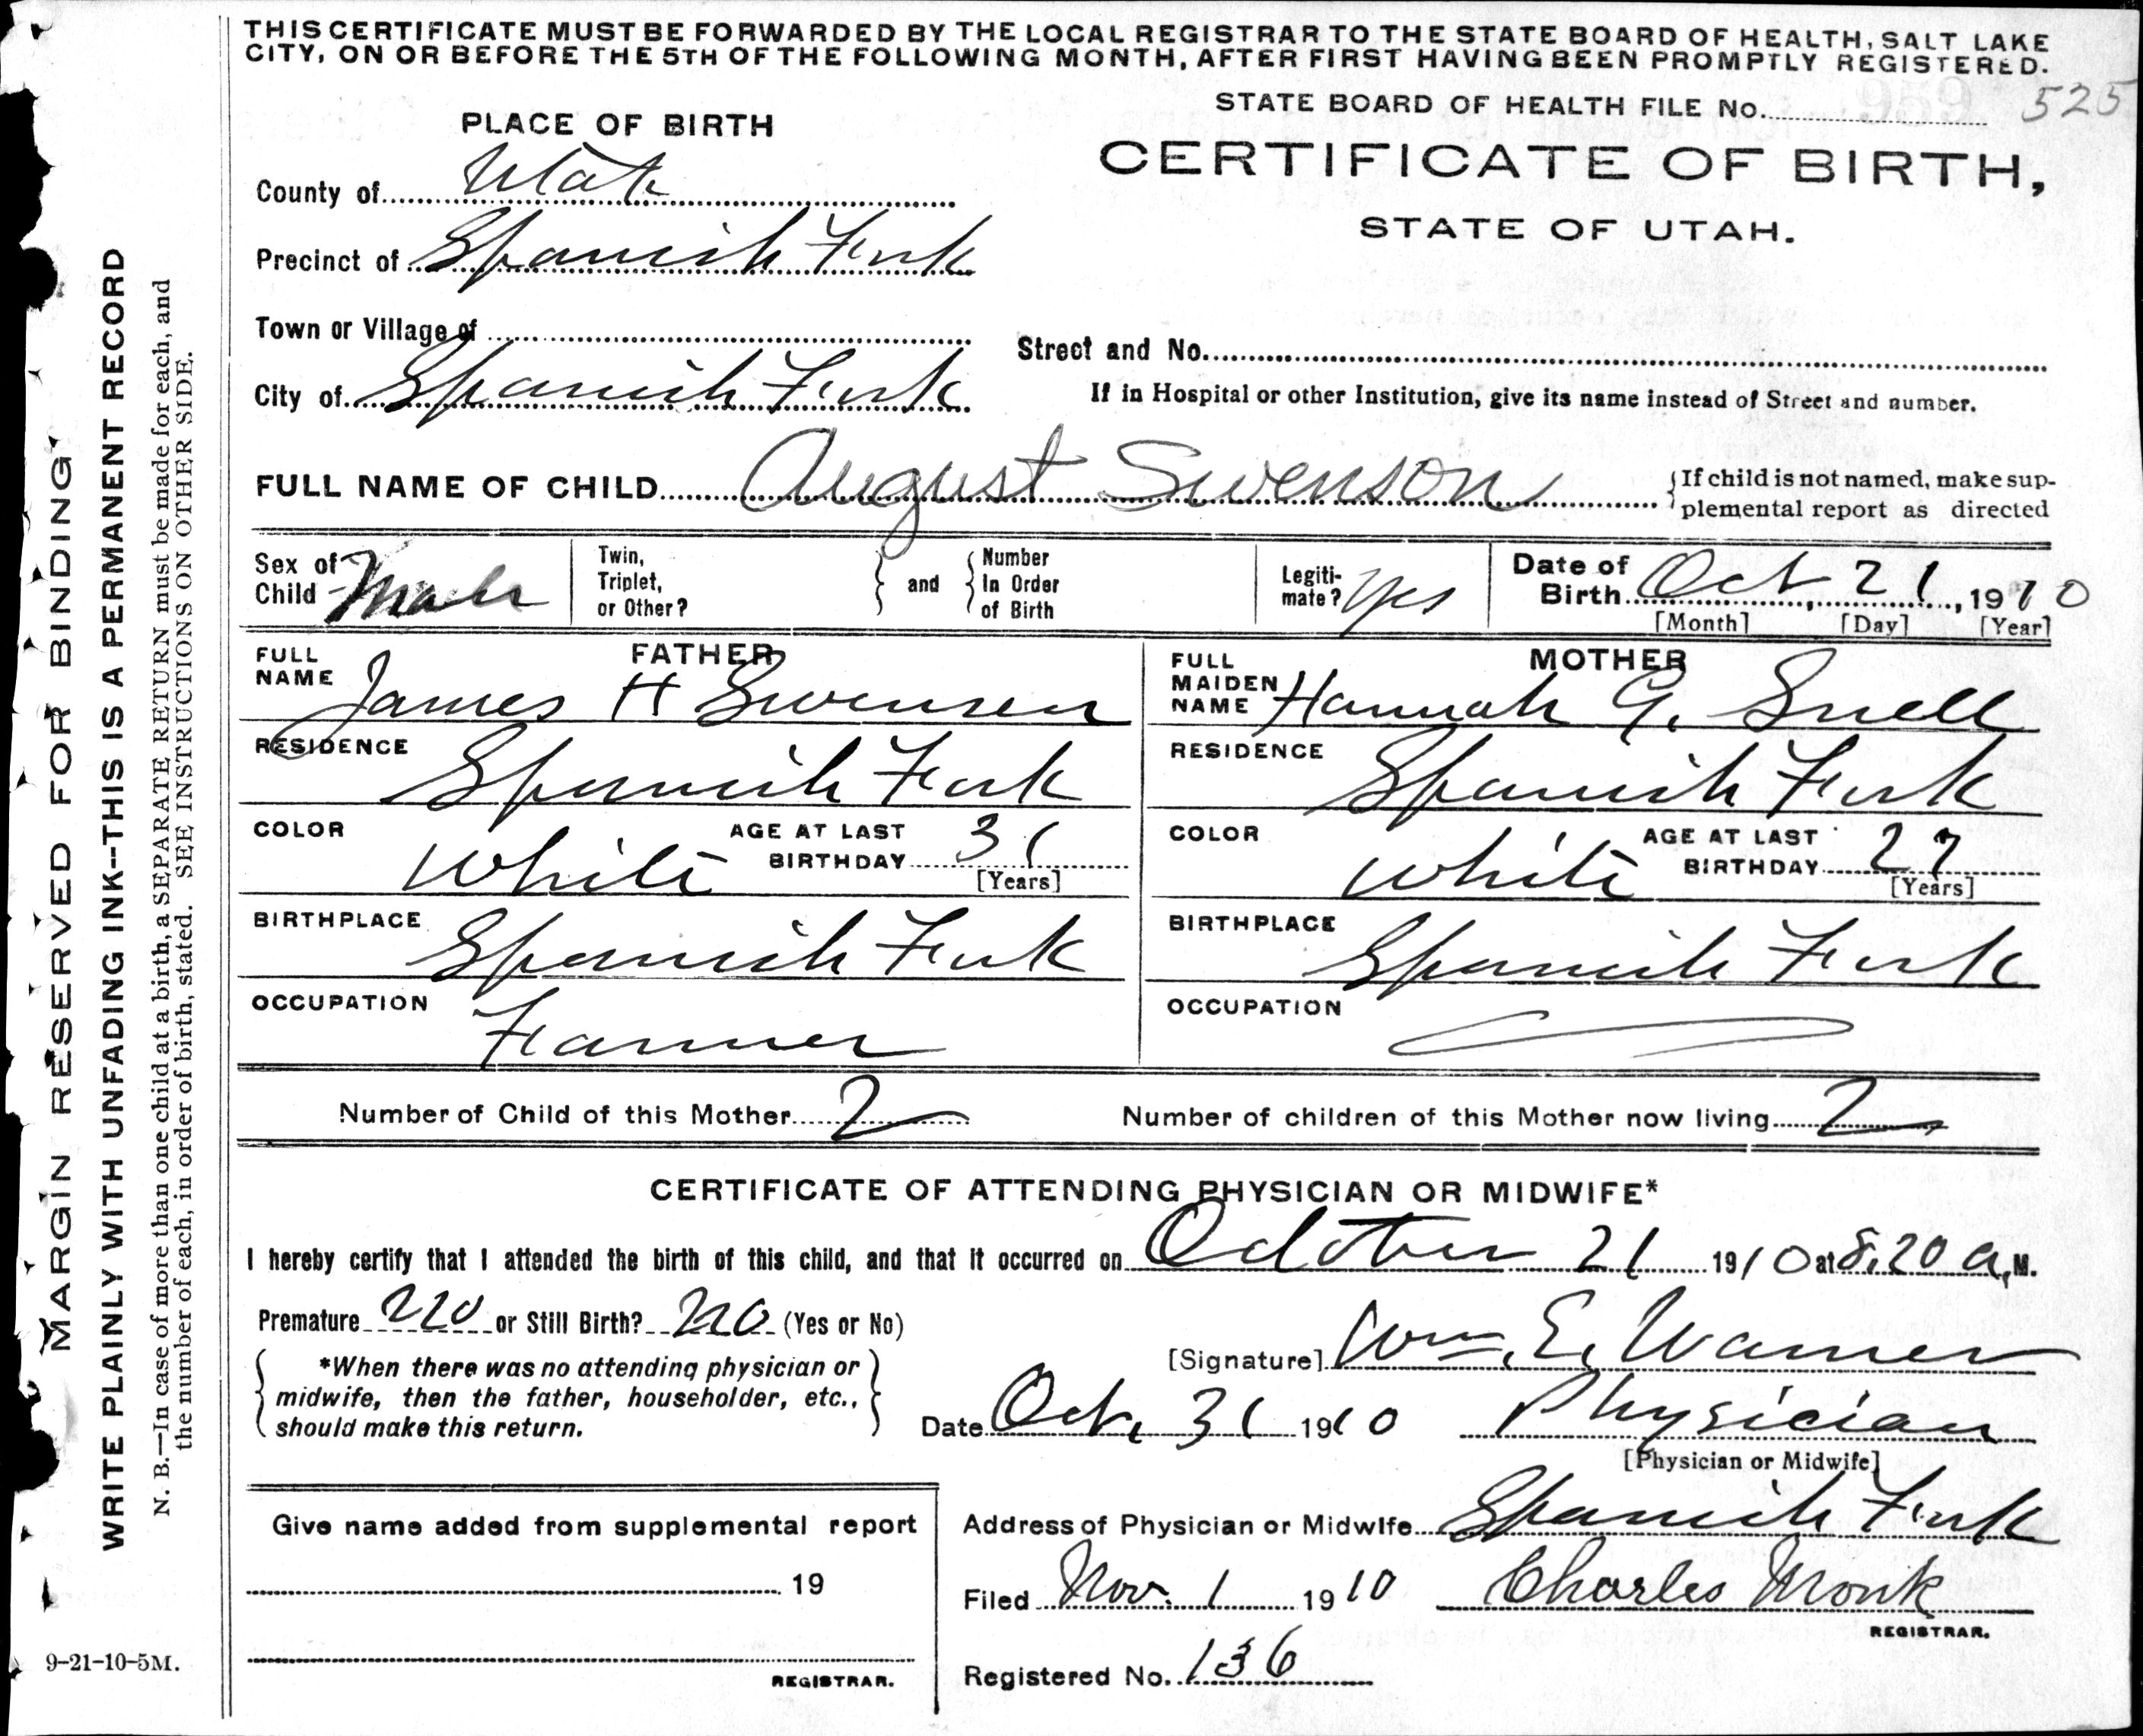 THIS CERTIFICATE MUST BE FORWARDED BY THE LOCAL REGISTRAR TO THE STATE BOARD OF HEALTH, SALT LAKE
CITY, ON OR BEFORE THE 5TH OF THE FOLLOWING MONTH, AFTER FIRST HAVING BEEN PROMPTLY REGISTERED.
STATE BOARD OF HEALTH FILE No. 525
PLACE OF BIRTH
CERTIFICATE OF BIRTH,
STATE OF UTAH.
County of Utah
Precinct of Spanish Fork
Town or Village of
Street and No.
City of Spanish Fork
If in Hospital or other Institution, give its name instead of Street and number.
FULL NAME OF CHILD August Swenson
{If child is not named, make sup-
plemental report as directed
Sex of Child Male
Twin, Triplet, or Other?
and
Number In Order of Birth
Legiti-mate? Yes
Date of Birth Oct 21, 1910
[Month] [Day] [Year]
FATHER
FULL NAME James H Swensen
RESIDENCE Spanish Fork
COLOR White
AGE AT LAST BIRTHDAY 31
[Years]
BIRTHPLACE Spanish Fork
OCCUPATION Farmer
MOTHER
FULL MAIDEN NAME Hannah G. Snell
RESIDENCE Spanish Fork
COLOR White
AGE AT LAST BIRTHDAY 27
[Years]
BIRTHPLACE Spanish Fork
OCCUPATION
Number of Child of this Mother 2
Number of children of this Mother now living 2
CERTIFICATE OF ATTENDING PHYSICIAN OR MIDWIFE*
I hereby certify that I attended the birth of this child, and that it occurred on October 21 1910 at 8.20 a.M.
Premature no or Still Birth? no (Yes or No)
*When there was no attending physician or
midwife, then the father, householder, etc.,
should make this return.
[Signature] Wm. E. Warner
Date Oct. 31 1910 Physician
[Physician or Midwife]
Give name added from supplemental report
19
REGISTRAR.
Address of Physician or Midwife Spanish Fork
Filed Nov. 1 1910 Charles Monk
REGISTRAR.
Registered No. 136
MARGIN RESERVED FOR BINDING
WRITE PLAINLY WITH UNFADING INK--THIS IS A PERMANENT RECORD
N. B.—In case of more than one child at a birth, a SEPARATE RETURN must be made for each, and
the number of each, in order of birth, stated. SEE INSTRUCTIONS ON OTHER SIDE.
9-21-10-5M.